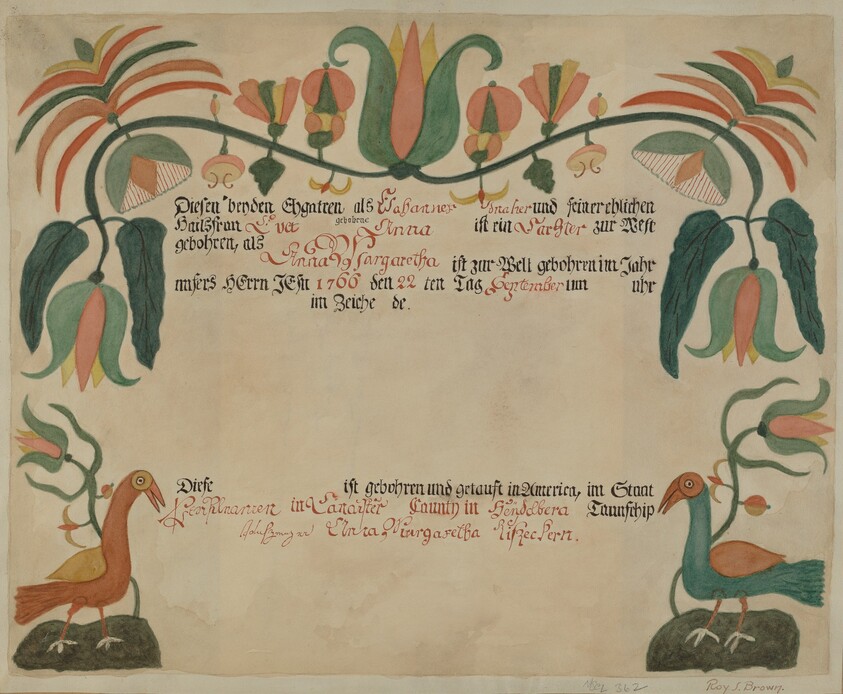 Diesen beyden Ehgatten, als Johannes und seiner ehlichen
gebohrne
Hausfrau Evet Anna ist ein Tochter zur Welt
gebohren, als
Anna Margaretha ist zur Welt gebohren im Jahr
unsers HErrn JEsu 1766 den 22 ten Tag September um uhr
im Zeiche de.
Diese ist gebohren und getauft in America, im Staat
in Canayster Caunty in Hendelbera Taunschip
Anna Margaretha
362 Roy S. Brown.